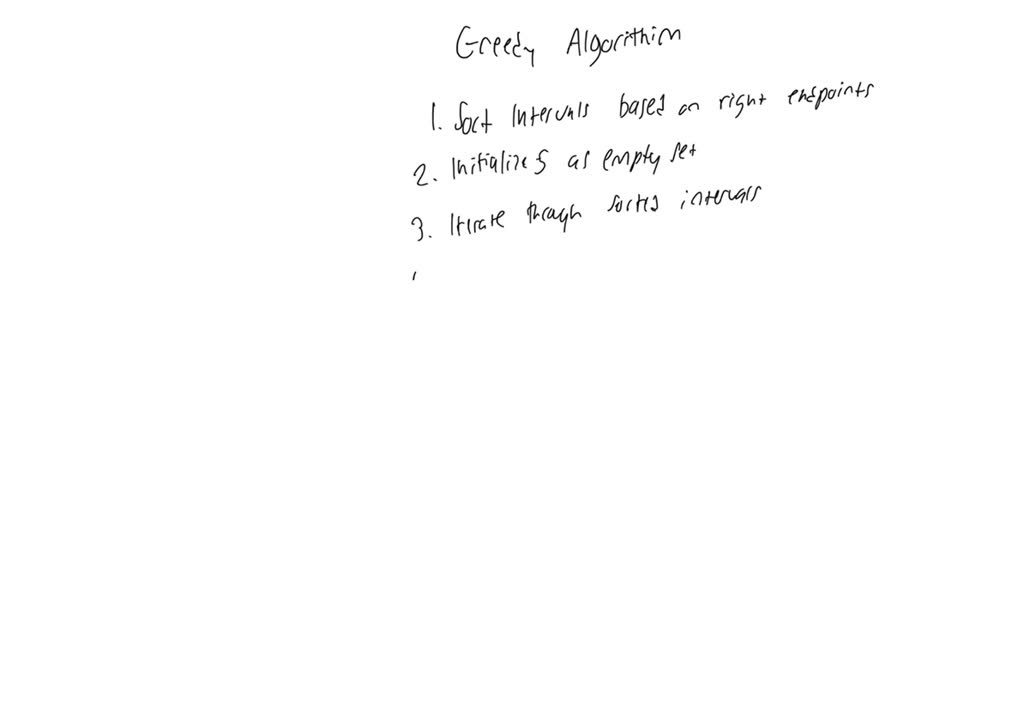 Greedy Algorithim
1. Sort Intervals based on right endpoints
2. Initialize S as empty set
3. Iterate through sorted intervals